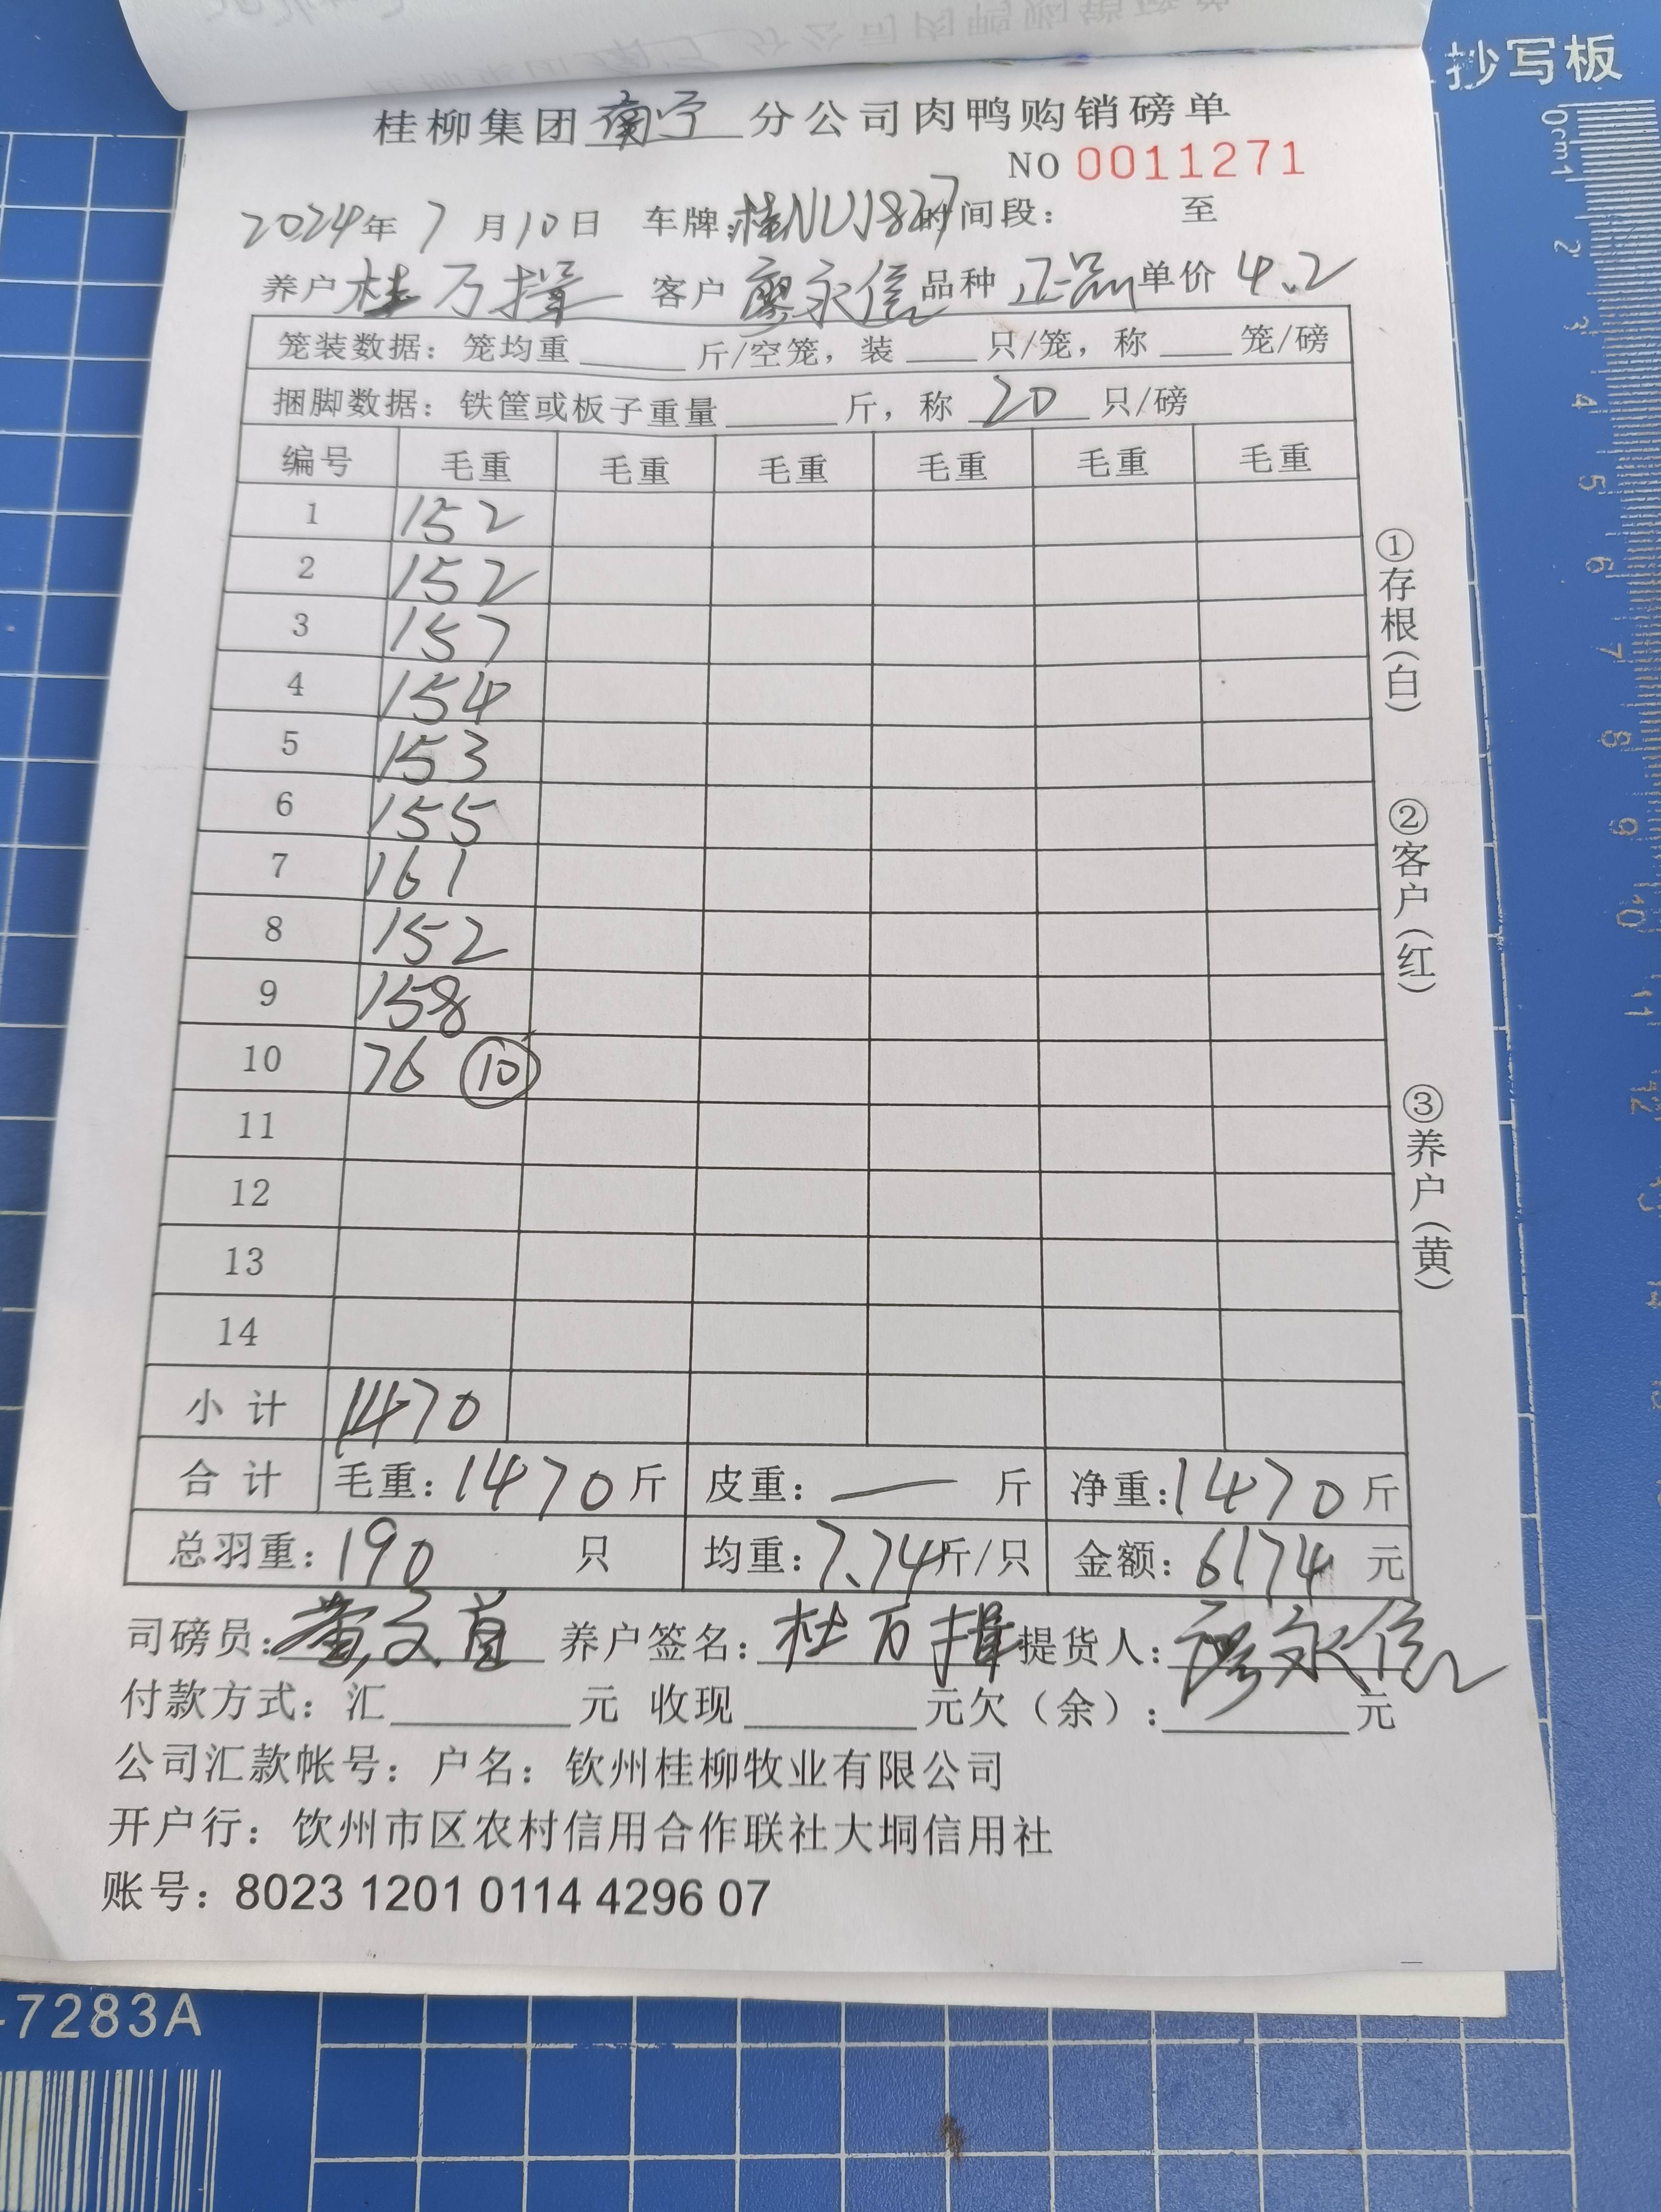 抄写板
桂柳集团南宁分公司肉鸭购销磅单
NO 0011271
2024年7月10日 车牌:桂NUJ827时间段: 至
养户 杜万揖 客户 廖永信 品种 正品 单价 4.2
笼装数据：笼均重____斤/空笼，装____只/笼，称____笼/磅
捆脚数据：铁筐或板子重量____斤，称 20 只/磅
编号 毛重 毛重 毛重 毛重 毛重 毛重
1 152
2 152
3 157
4 154
5 153
6 155
7 161
8 152
9 158
10 76 ⑩
11
12
13
14
小计 1470
合计 毛重:1470斤 皮重:—斤 净重:1470斤
总羽重:190只 均重:7.74斤/只 金额:6174元
司磅员: 养户签名:杜万揖 提货人:廖永信
付款方式：汇____元 收现____元欠（余）:____元
公司汇款帐号：户名：钦州桂柳牧业有限公司
开户行：饮州市区农村信用合作联社大垌信用社
账号：8023 1201 0114 4296 07
①存根(白)
②客户(红)
③养户(黄)
-7283A
0cm1
2
3
4
5
6
7
8
9
10
11
12